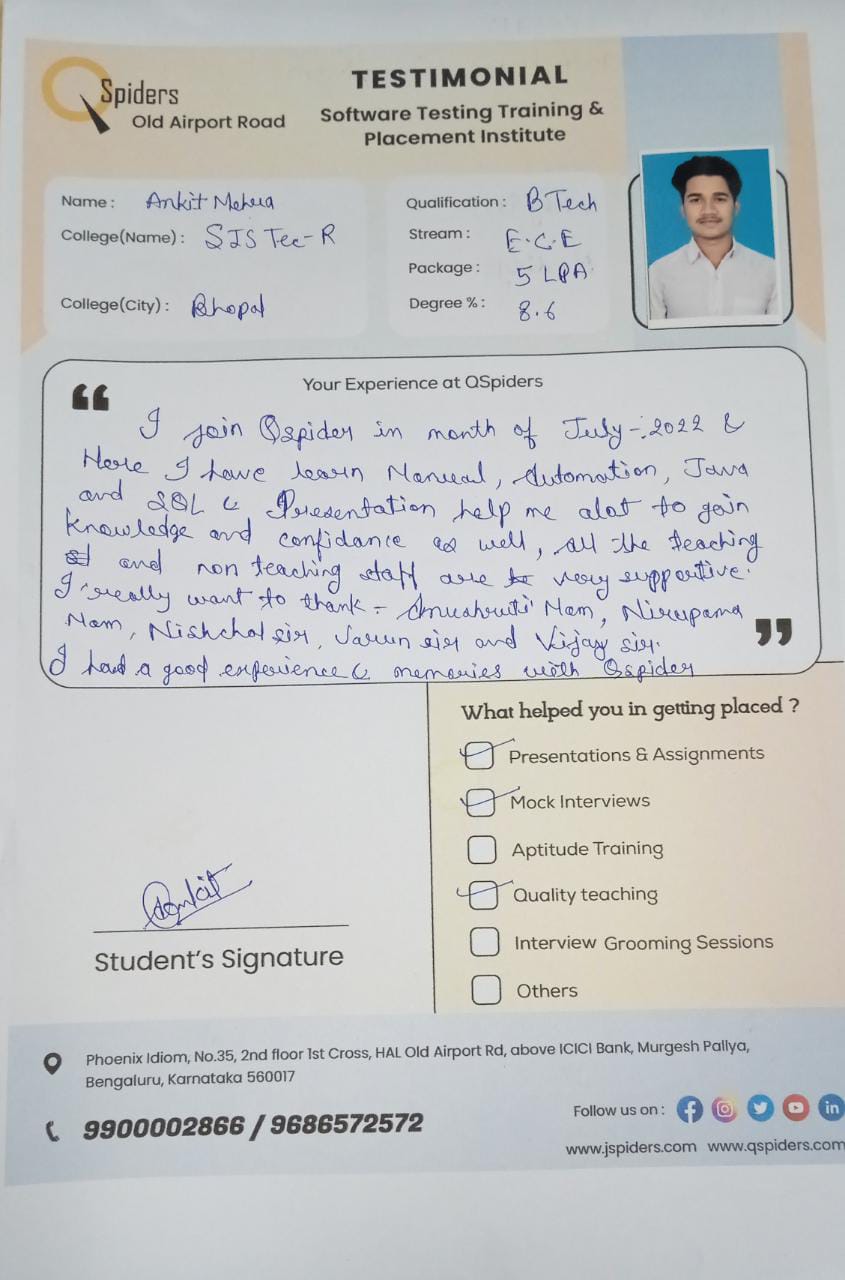 QSpiders
Old Airport Road
TESTIMONIAL
Software Testing Training &
Placement Institute
Name : Ankit Mehra
College(Name) : SIS Tec-R
College(City) : Bhopal
Qualification : B Tech
Stream : E.C.E
Package : 5 LPA
Degree % : 8.6
Your Experience at QSpiders
“
I join Qspider in month of July-2022 &
Here I have learn Manual, Automation, Java
and SQL & Presentation help me alot to gain
knowledge and confidance as well, all the teaching
and non teaching staff are very supportive.
I really want to thank - Anushruti Mam, Nirupama
Mam, Nishchal sir, Varun sir and Vijay sir.
I had a good experience & memories with Qspider
”
What helped you in getting placed ?
Presentations & Assignments
Mock Interviews
Aptitude Training
Quality teaching
Interview Grooming Sessions
Others
Ankit
Student's Signature
Phoenix Idiom, No.35, 2nd floor 1st Cross, HAL Old Airport Rd, above ICICI Bank, Murgesh Pallya,
Bengaluru, Karnataka 560017
9900002866 / 9686572572
Follow us on :
www.jspiders.com www.qspiders.com